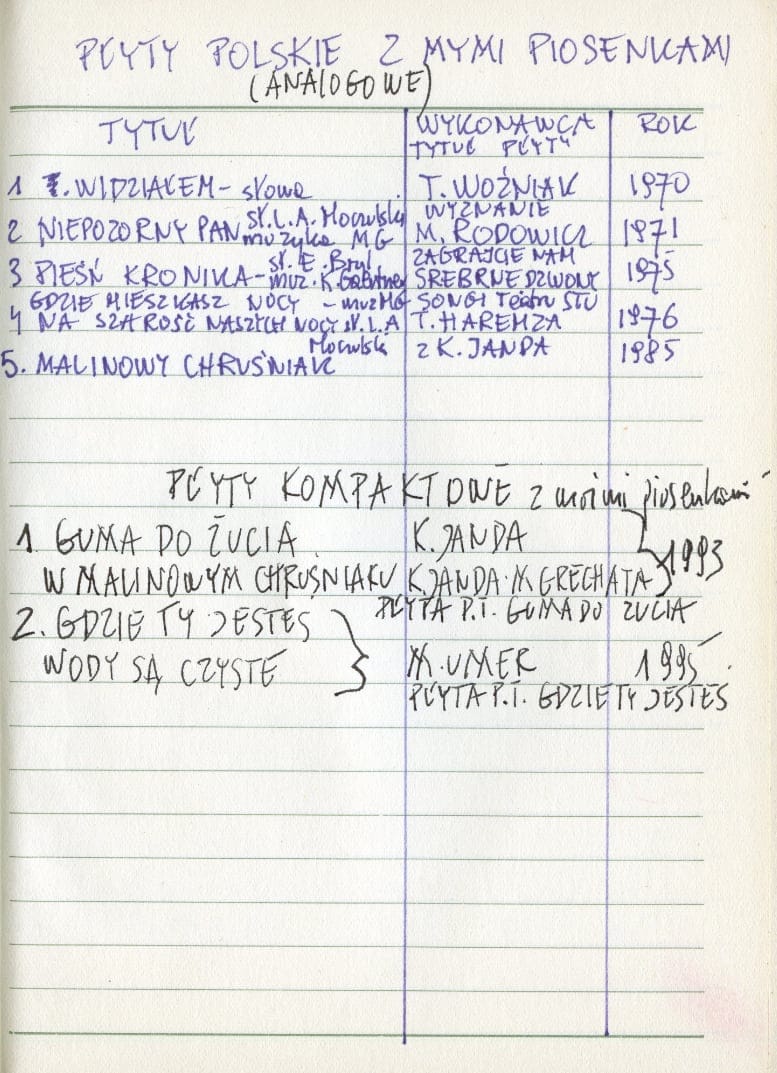 PŁYTY POLSKIE Z MYMI PIOSENKAMI
(ANALOGOWE)
TYTUŁ WYKONAWCA ROK
TYTUŁ PŁYTY
1 WIDZIAŁEM - słowa T. WOŹNIAK 1970
WYZNANIE
2 NIEPOZORNY PAN sł. L.A. Moczulski muzyka MG M. RODOWICZ 1971
ZAGRAJCIE NAM
3 PIEŚŃ KRONIKA - sł. E. Bryl muz. K. Gaertner SREBRNE DZWONY 1975
GDZIE MIESZKASZ NOCY - muz MG SONGI Teatru STU
4 NA SZAROŚĆ NASZYCH NOCY sł. L.A T. HAREMZA 1976
Moczulsk Z K. JANDA 1985
5. MALINOWY CHRUŚNIAK
PŁYTY KOMPAKTOWE z moimi piosenkami
1. GUMA DO ŻUCIA K. JANDA 1993
W MALINOWYM CHRUŚNIAKU K. JANDA. M GRECHUTA
PŁYTA P.T. GUMA DO ŻUCIA
2. GDZIE TY JESTEŚ
WODY SĄ CZYSTE M. UMER 1995
PŁYTA P.T. GDZIE TY JESTEŚ